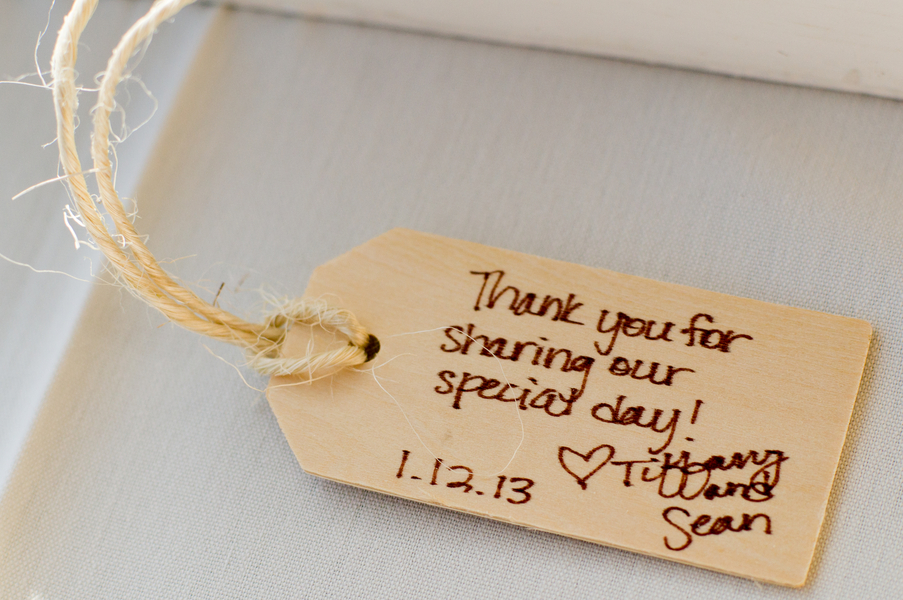 Thank you for
sharing our
special day!
♡ Tiffany
and
Sean
1.12.13